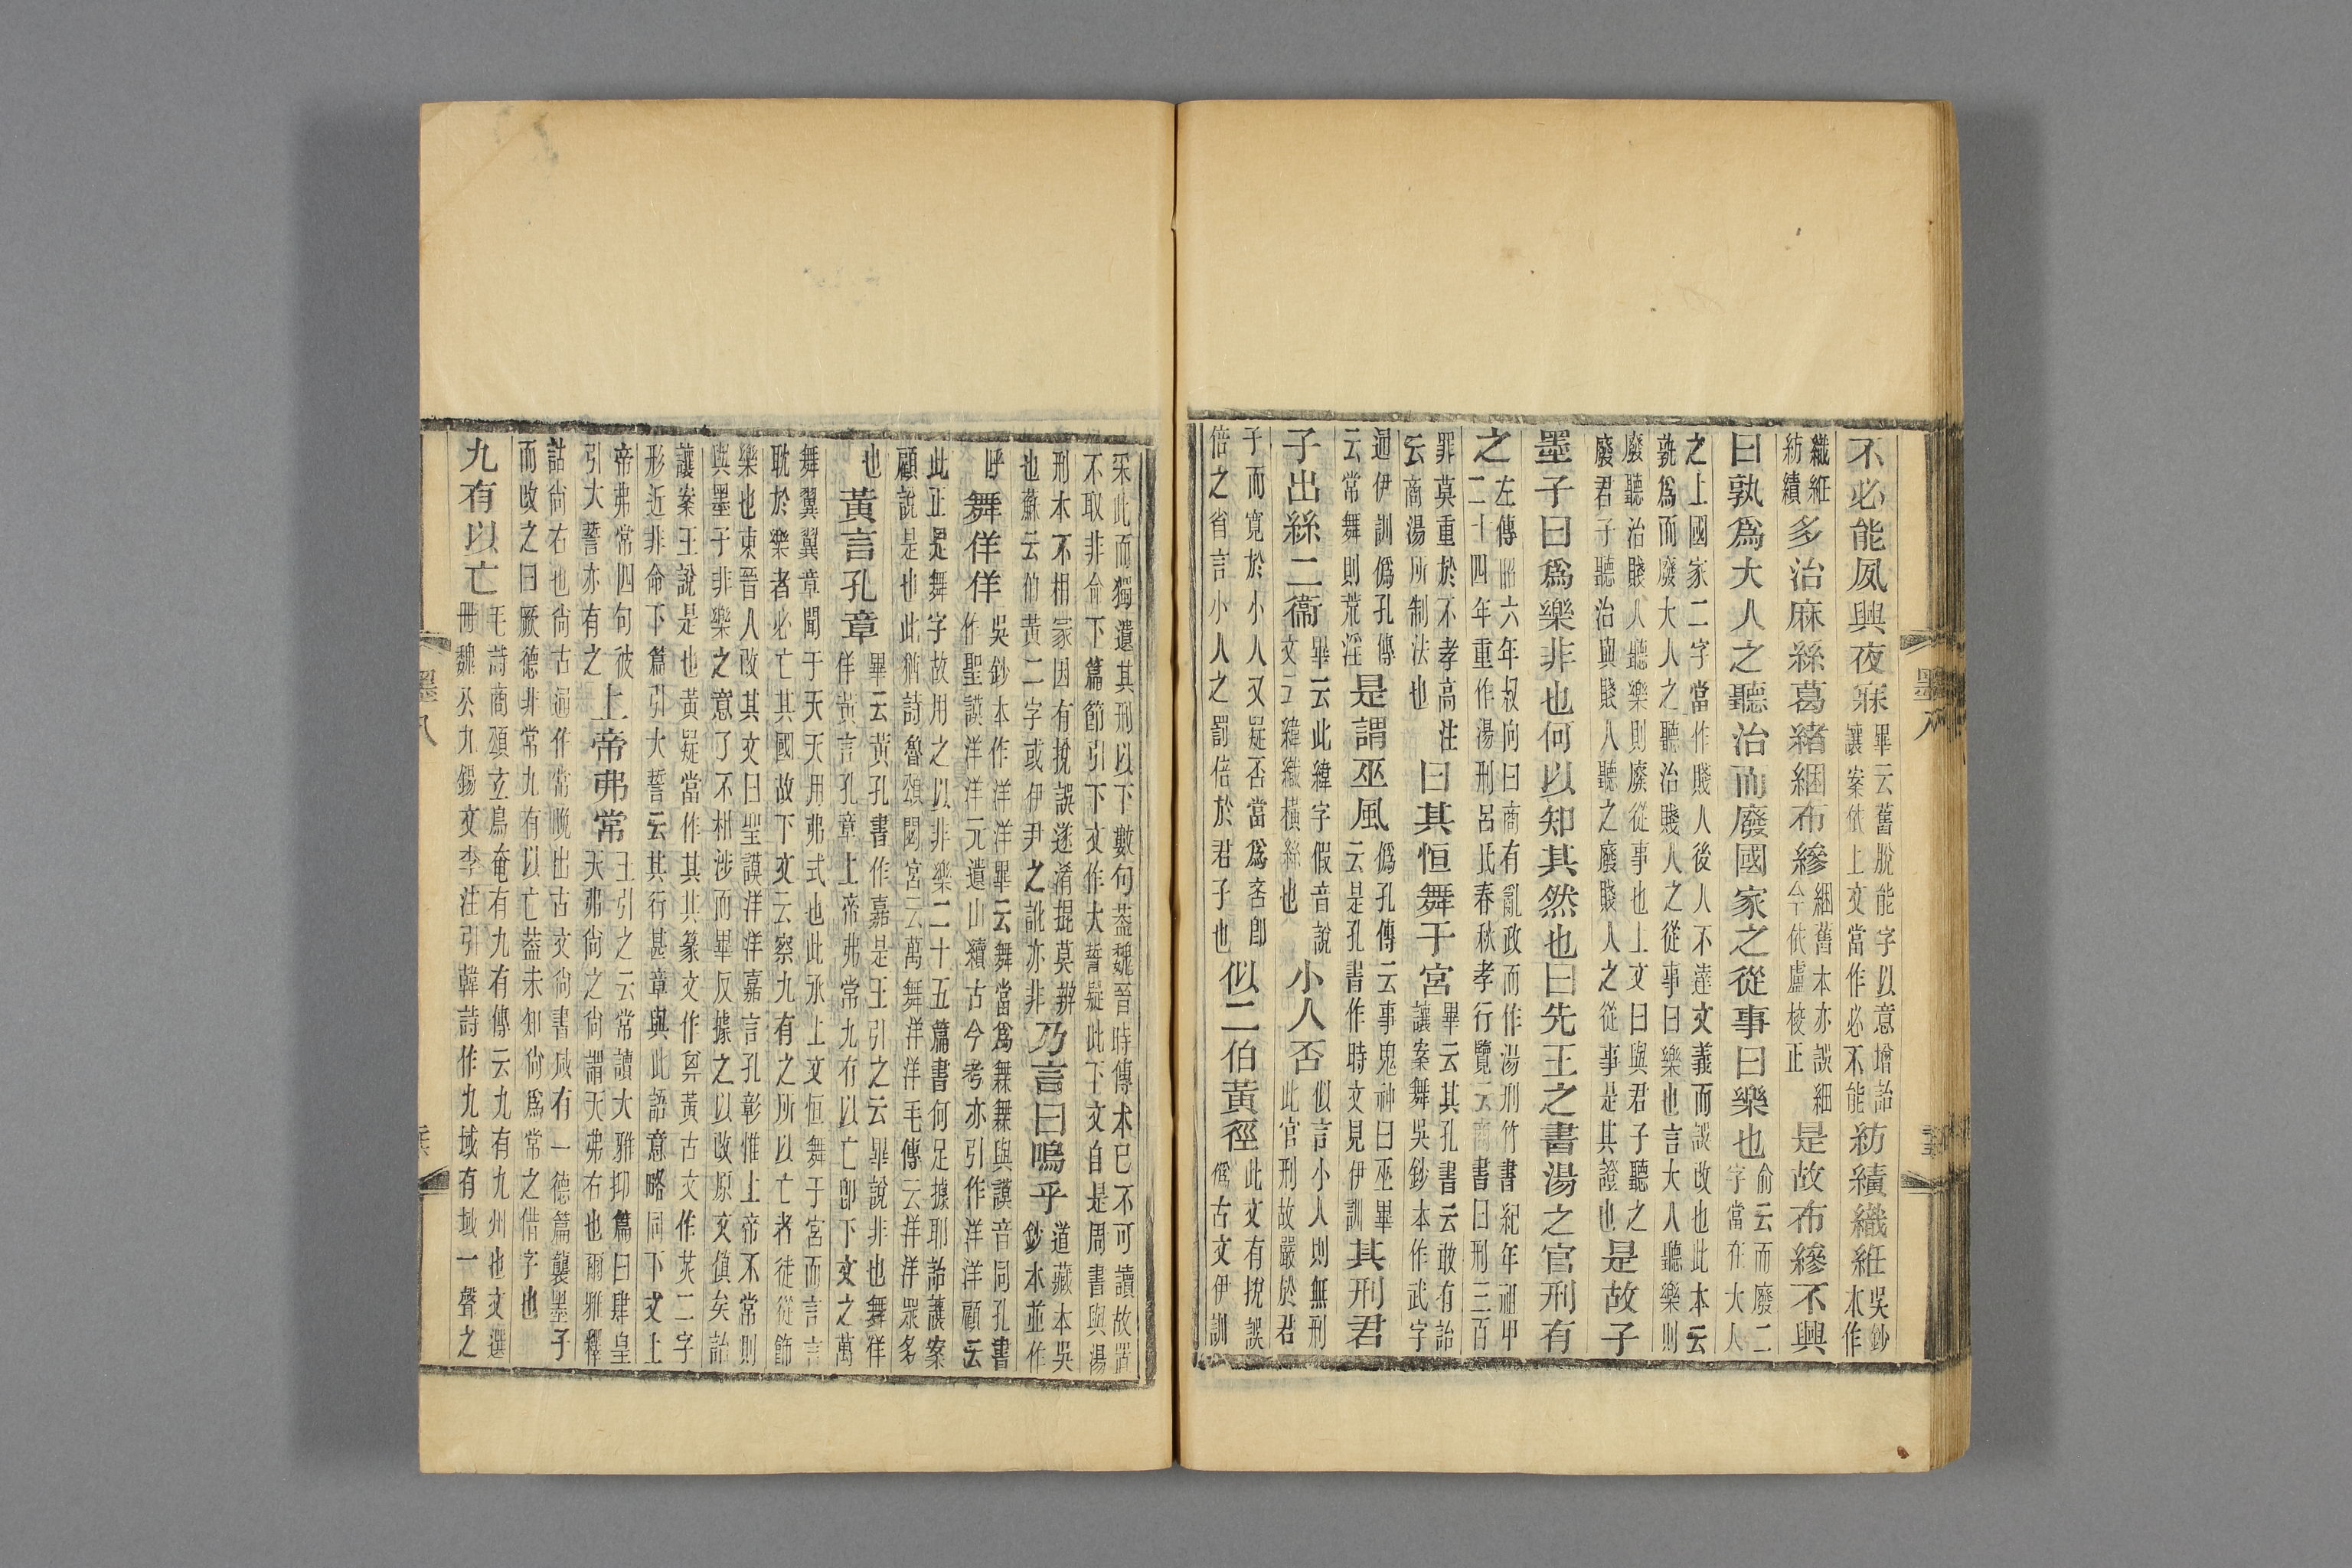 不必能夙興夜寐畢云舊脫能字以意增詒讓案依上文當作必不能紡績織紝吳鈔本作
織紝紡績多治麻絲葛緒綑布縿綑舊本亦誤細今依盧校正是故布縿不興
曰孰爲大人之聽治而廢國家之從事曰樂也俞云而廢二字當在大人
之上國家二字當作賤人後人不達文義而誤改也此本云孰爲而廢大人之聽治賤人之從事曰樂也言大人聽樂則
廢聽治賤人聽樂則廢從事也上文曰與君子聽之廢君子聽治與賤人聽之廢賤人之從事是其證也是故子
墨子曰爲樂非也何以知其然也曰先王之書湯之官刑有
之左傳昭六年叔向曰商有亂政而作湯刑竹書紀年祖甲二十四年重作湯刑呂氏春秋孝行覽云商書曰刑三百
罪莫重於不孝高注云商湯所制法也曰其恒舞于宮畢云其孔書云敢有詒讓案舞吳鈔本作武字
通伊訓僞孔傳云常舞則荒淫是謂巫風僞孔傳云事鬼神曰巫畢云是孔書作時文見伊訓其刑君
子出絲二衞畢云此緯字假音說文云緯織橫絲也小人否似言小人則無刑此官刑故嚴於君
子而寬於小人又疑否當爲吝卽倍之省言小人之罰倍於君子也似二伯黃徑此文有捝誤僞古文伊訓
采此而獨遺其刑以下數句蓋魏晉時傳本已不可讀故置不取非命下篇節引下文作大誓疑此下文自是周書與湯
刑本不相冡因有捝誤遂淆掍莫辨也蘇云伯黃二字或伊尹之訛亦非乃言曰嗚乎道藏本吳鈔本並作
呼舞佯佯吳鈔本作洋洋畢云舞當爲橆橆與謨音同孔書作聖謨洋洋元遺山續古今考亦引作洋洋顧云
此正是舞字故用之以非樂二十五篇書何足據耶詒讓案顧說是也此猶詩魯頌閟宮云萬舞洋洋毛傳云洋洋眾多
也黃言孔章畢云黃孔書作嘉是王引之云畢說非也舞佯佯黃言孔章上帝弗常九有以亡卽下文之萬
舞翼翼章聞于天天用弗式也此承上文恒舞于宮而言言耽於樂者必亡其國故下文云察九有之所以亡者徒從飾
樂也東晉人改其文曰聖謨洋洋嘉言孔彰惟上帝不常則與墨子非樂之意了不相涉而畢反據之以改原文傎矣詒
讓案王說是也黃疑當作其其篆文作𠔝黃古文作炗二字形近非命下篇引大誓云其行甚章與此語意略同下文上
帝弗常四句彼引大誓亦有之上帝弗常王引之云常讀大雅抑篇曰肆皇天弗尙之尙謂天弗右也爾雅釋
詁尙右也尙古通作常晚出古文尙書咸有一德篇襲墨子而改之曰厥德非常九有以亡蓋未知尙爲常之借字也
九有以亡毛詩商頌玄鳥奄有九有傳云九有九州也文選冊魏公九錫文李注引韓詩作九域有域一聲之
墨八